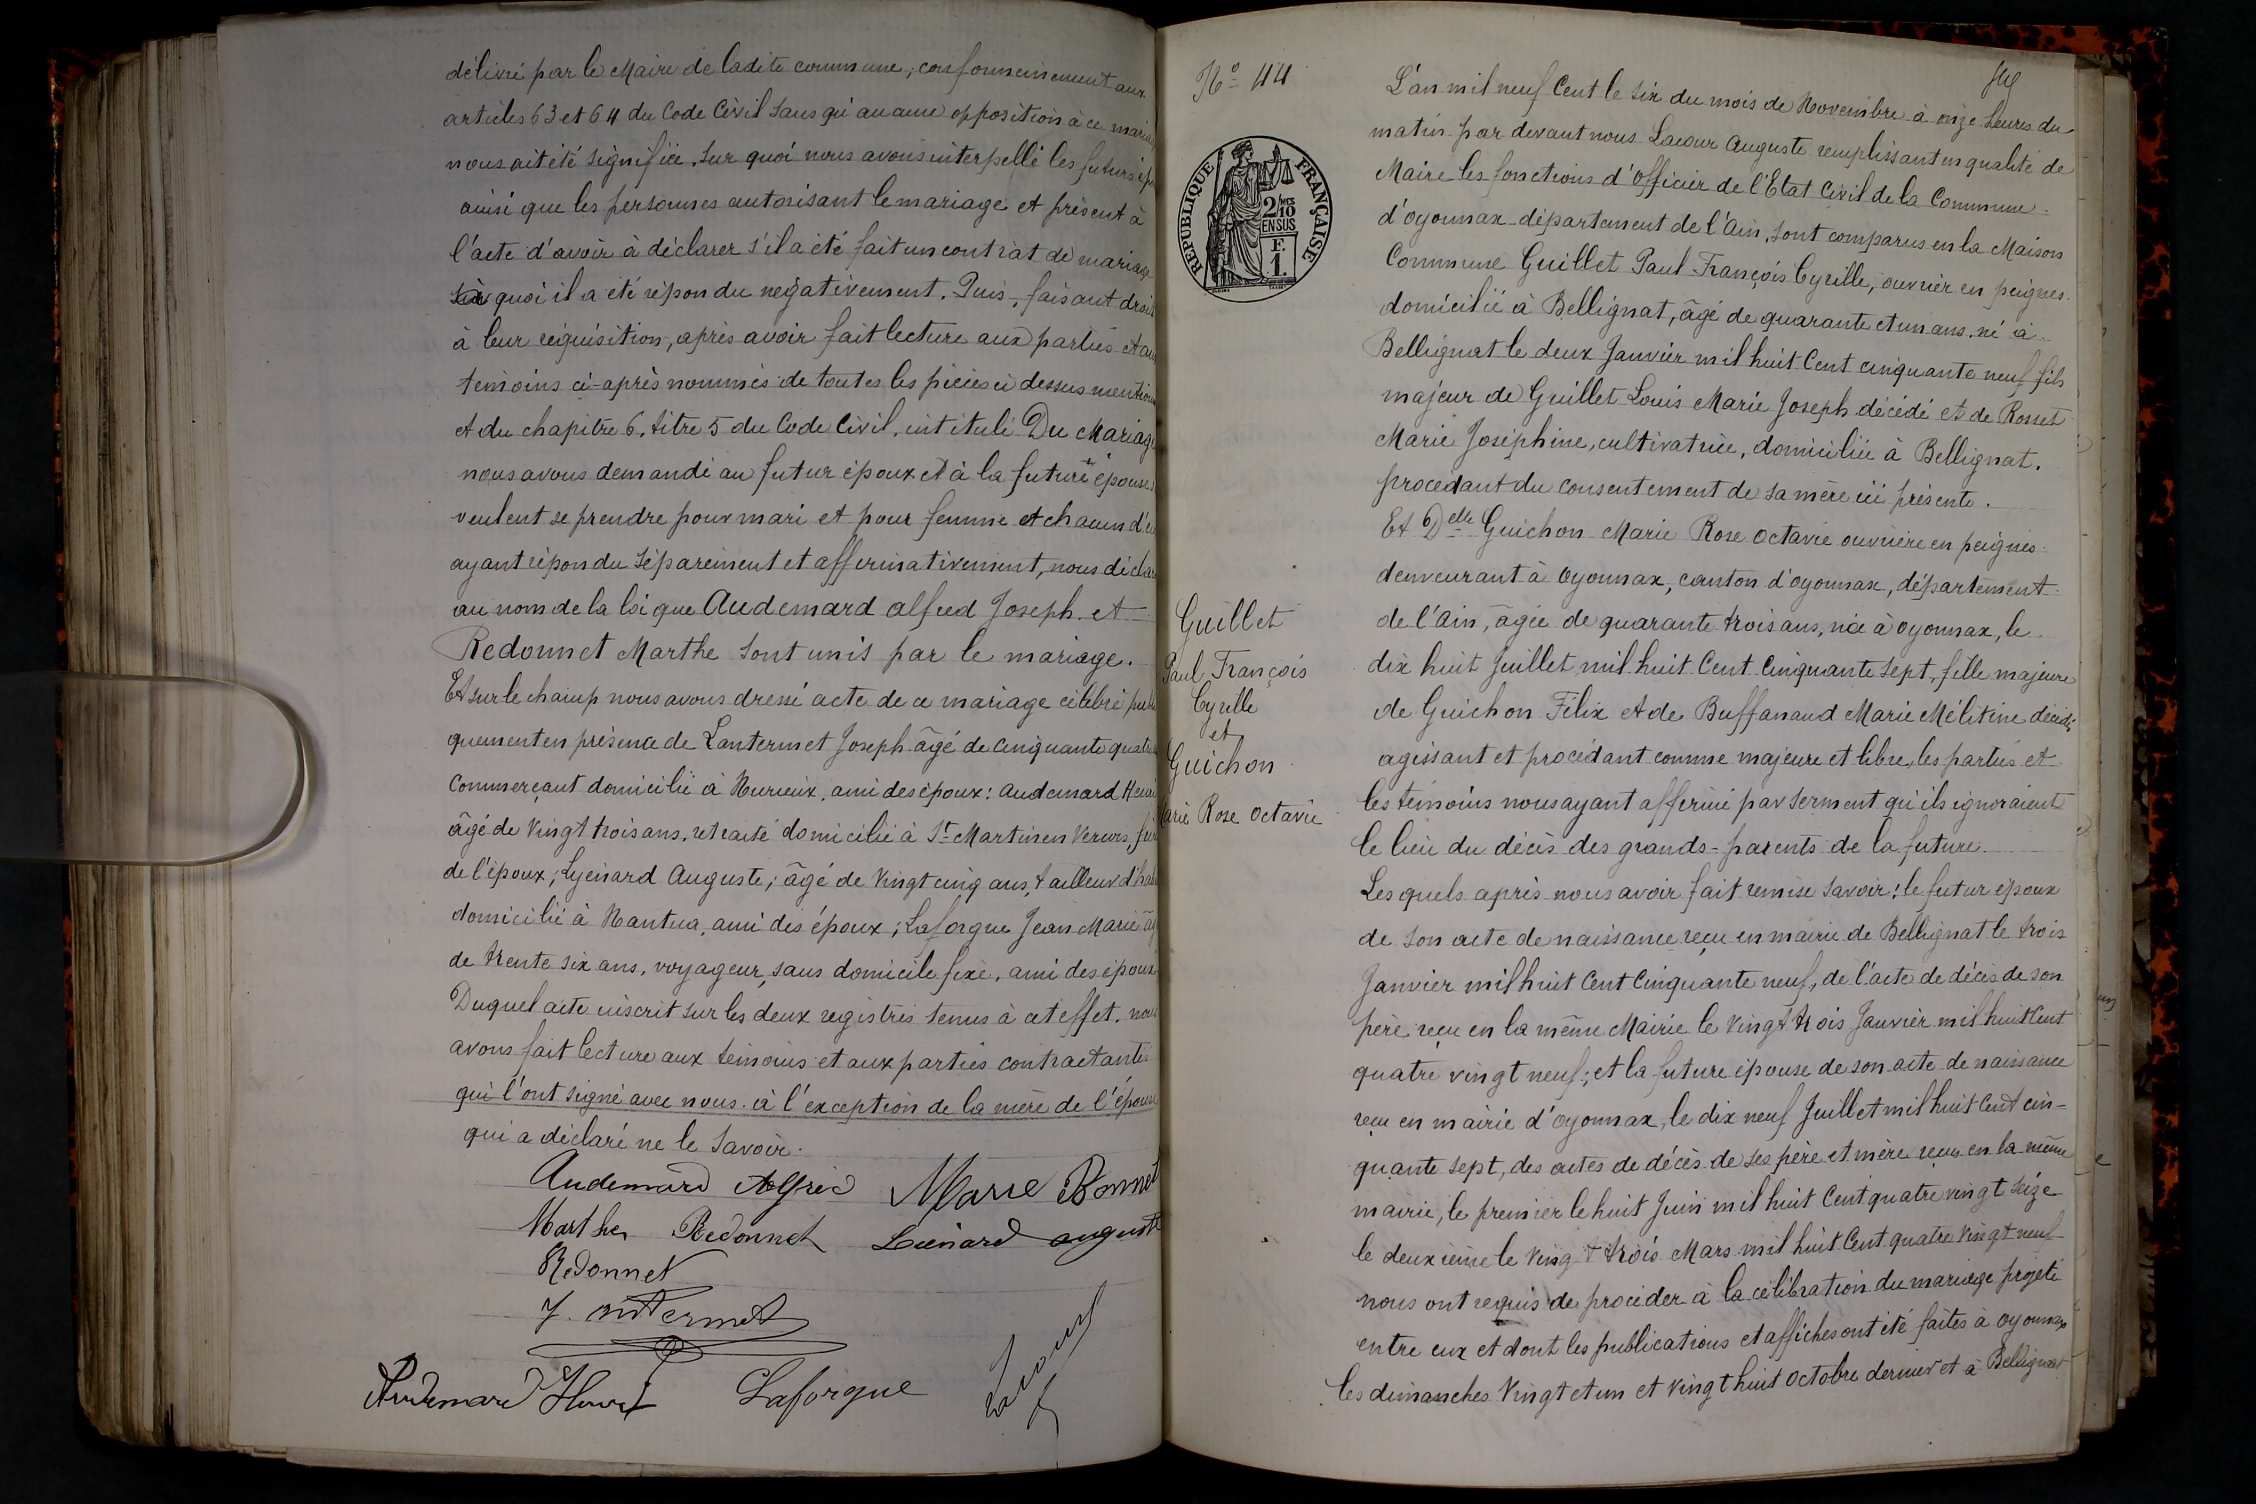 délivré par le Maire de ladite commune, conformémement aux
articles 63 et 64 du Code Civil sans qu'aucune opposition à ce maria
nous ait été signifiée. Sur quoi nous avons interpellé les futurs ép
ainsi que les personnes autorisant le mariage et présent à
l'acte d'avoir à déclarer s'il a été fait un contrat de mariage
quoi il a été répondu négativement. Puis, faisant droit
à leur réquisition, après avoir fait lecture aux parties et au
témoins ci-après nommés de toutes les pièces ci dessus mention
et du chapitre 6, titre 5 du Code Civil, intitulé Du Mariage
nous avons demandé au futur époux et à la future épouse s
veulent se prendre pour mari et pour femme et chacun d'e
ayant répondu séparément et affirmativement, nous décla
au nom de la loi que Audemard Alfred Joseph et
Redonnet Marthe sont unis par le mariage.
Et sur le champ nous avons dressé acte de ce mariage célébré publi
quement en présence de Lantermet Joseph âgé de cinquante quatre
commerçant domicilié à Nurieux, ami des époux: Audemard Henri
âgé de vingt trois ans, retraité domicilié à St Martin en Vercors, frè
de l'époux; Lyénard Auguste; âgé de vingt cinq ans, tailleur d'hab
domicilié à Nantua, ami des époux; Laforgue Jean Marie âg
de trente six ans, voyageur, sans domicile fixe, ami des époux
Duquel acte inscrit sur les deux registres tenus à cet effet, nous
avons fait lecture aux témoins et aux parties contractantes
qui l'ont signé avec nous à l'exception de la mère de l'épouse
qui a déclaré ne le savoir.
Audemard Alfred Marie Bonnet
Marthe Redonnet Liénard auguste
Redonnet
J. antermet
Audemard Henri Laforgue Lacour
No 44
RÉPUBLIQUE FRANÇAISE
2/10
EN SUS
F.
1.
Guillet
Paul François
Cyrille
et
Guichon
arie Rose Octavie
L'an mil neuf Cent le six du mois de Novembre à onze heures du
matin par devant nous Lacour Auguste remplissant en qualité de
Maire les fonctions d'Officier de l'Etat Civil de la Commune
d'Oyonnax département de l'Ain, sont comparus en la Maison
Commune Guillet Paul François Cyrille, ouvrier en peignes
domicilié à Bellignat, âgé de quarante et un ans, né à
Bellignat le deux Janvier mil huit Cent cinquante neuf fils
majeur de Guillet Louis Marie Joseph décédé et de Rosset
Marie Joséphine, cultivatrice, domiciliée à Bellignat.
procédant du consentement de sa mère ici présente.
Et Delle Guichon Marie Rose Octavie ouvrière en peignes
demeurant à Oyonnax, canton d'Oyonnax, département
de l'Ain, âgée de quarante trois ans, née à Oyonnax, le
dix huit Juillet mil huit Cent Cinquante sept, fille majeure
de Guichon Félix et de Buffanaud Marie Mélitine décédés
agissant et procédant comme majeure et libre, les parties et
les témoins nous ayant affirmé par serment qu'ils ignoraient
le lieu du décès des grands-parents de la future.
Lesquels après nous avoir fait remise savoir: le futur époux
de son acte de naissance reçu en mairie de Bellignat le trois
Janvier mil huit Cent Cinquante neuf, de l'acte de décès de son
père reçu en la même Mairie le vingt trois Janvier mil huit Cent
quatre vingt neuf; et la future épouse de son acte de naissance
reçu en mairie d'Oyonnax, le dix neuf Juillet mil huit Cent cin-
quante sept, des actes de décès de ses père et mère reçus en la même
mairie, le premier le huit Juin mil huit Cent quatre vingt seize
le deuxième le vingt trois Mars mil huit Cent quatre vingt neuf
nous ont requis de procéder à la célébration du mariage projeté
entre eux et dont les publications et affiches ont été faites à Oyonnax
les dimanches vingt et un et vingt huit Octobre dernier et à Bellignat